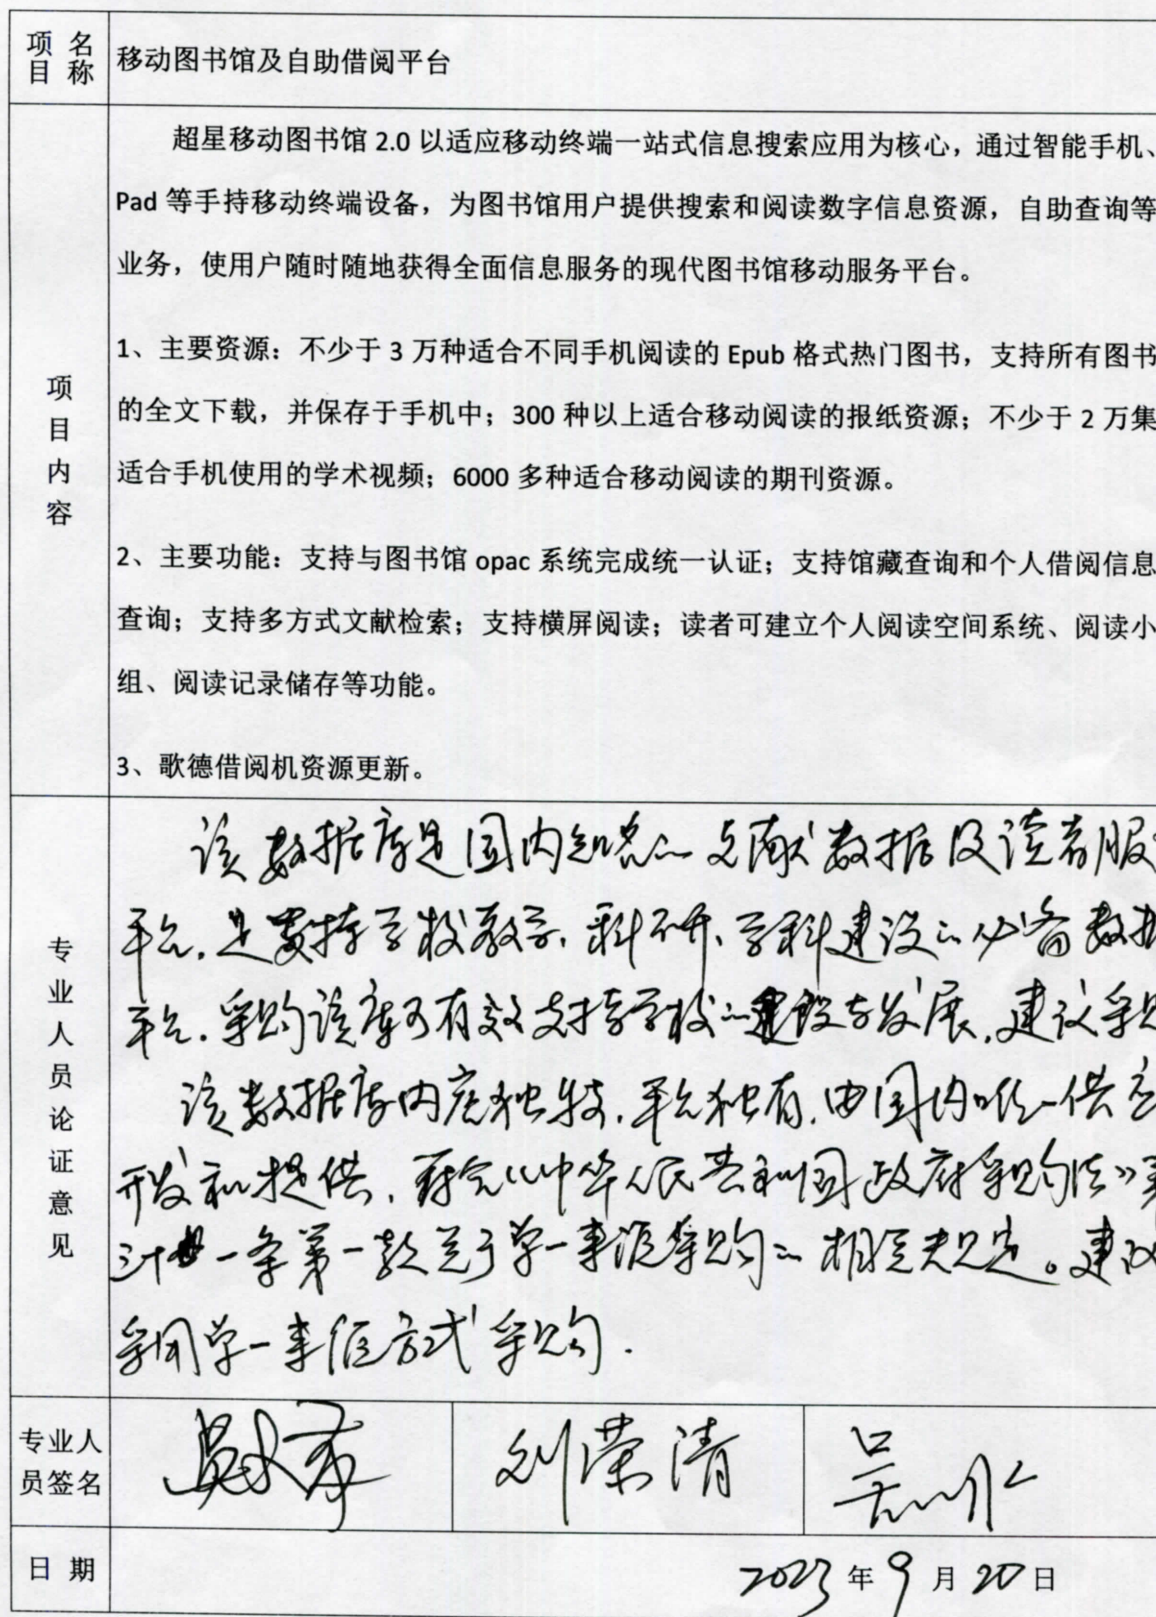 项目名称
移动图书馆及自助借阅平台
项目内容
超星移动图书馆 2.0 以适应移动终端一站式信息搜索应用为核心，通过智能手机、
Pad 等手持移动终端设备，为图书馆用户提供搜索和阅读数字信息资源，自助查询等
业务，使用户随时随地获得全面信息服务的现代图书馆移动服务平台。
1、主要资源：不少于 3 万种适合不同手机阅读的 Epub 格式热门图书，支持所有图书
的全文下载，并保存于手机中；300 种以上适合移动阅读的报纸资源；不少于 2 万集
适合手机使用的学术视频；6000 多种适合移动阅读的期刊资源。
2、主要功能：支持与图书馆 opac 系统完成统一认证；支持馆藏查询和个人借阅信息
查询；支持多方式文献检索；支持横屏阅读；读者可建立个人阅读空间系统、阅读小
组、阅读记录储存等功能。
3、歌德借阅机资源更新。
专业人员论证意见
该数据库是国内知名的文献数据及读者服
平台.是支持学校教学、科研、学科建设的必备数据
平台.采购该库可有效支持学校的建设与发展.建议采购
该数据库内容独特.平台独有.由国内唯一供应
开发和提供.符合《中华人民共和国政府采购法》第
三十一条第一款关于单一来源采购的相关规定。建议
采用单一来源方式采购.
专业人员签名
刘荣清
日期
2023年9月20日